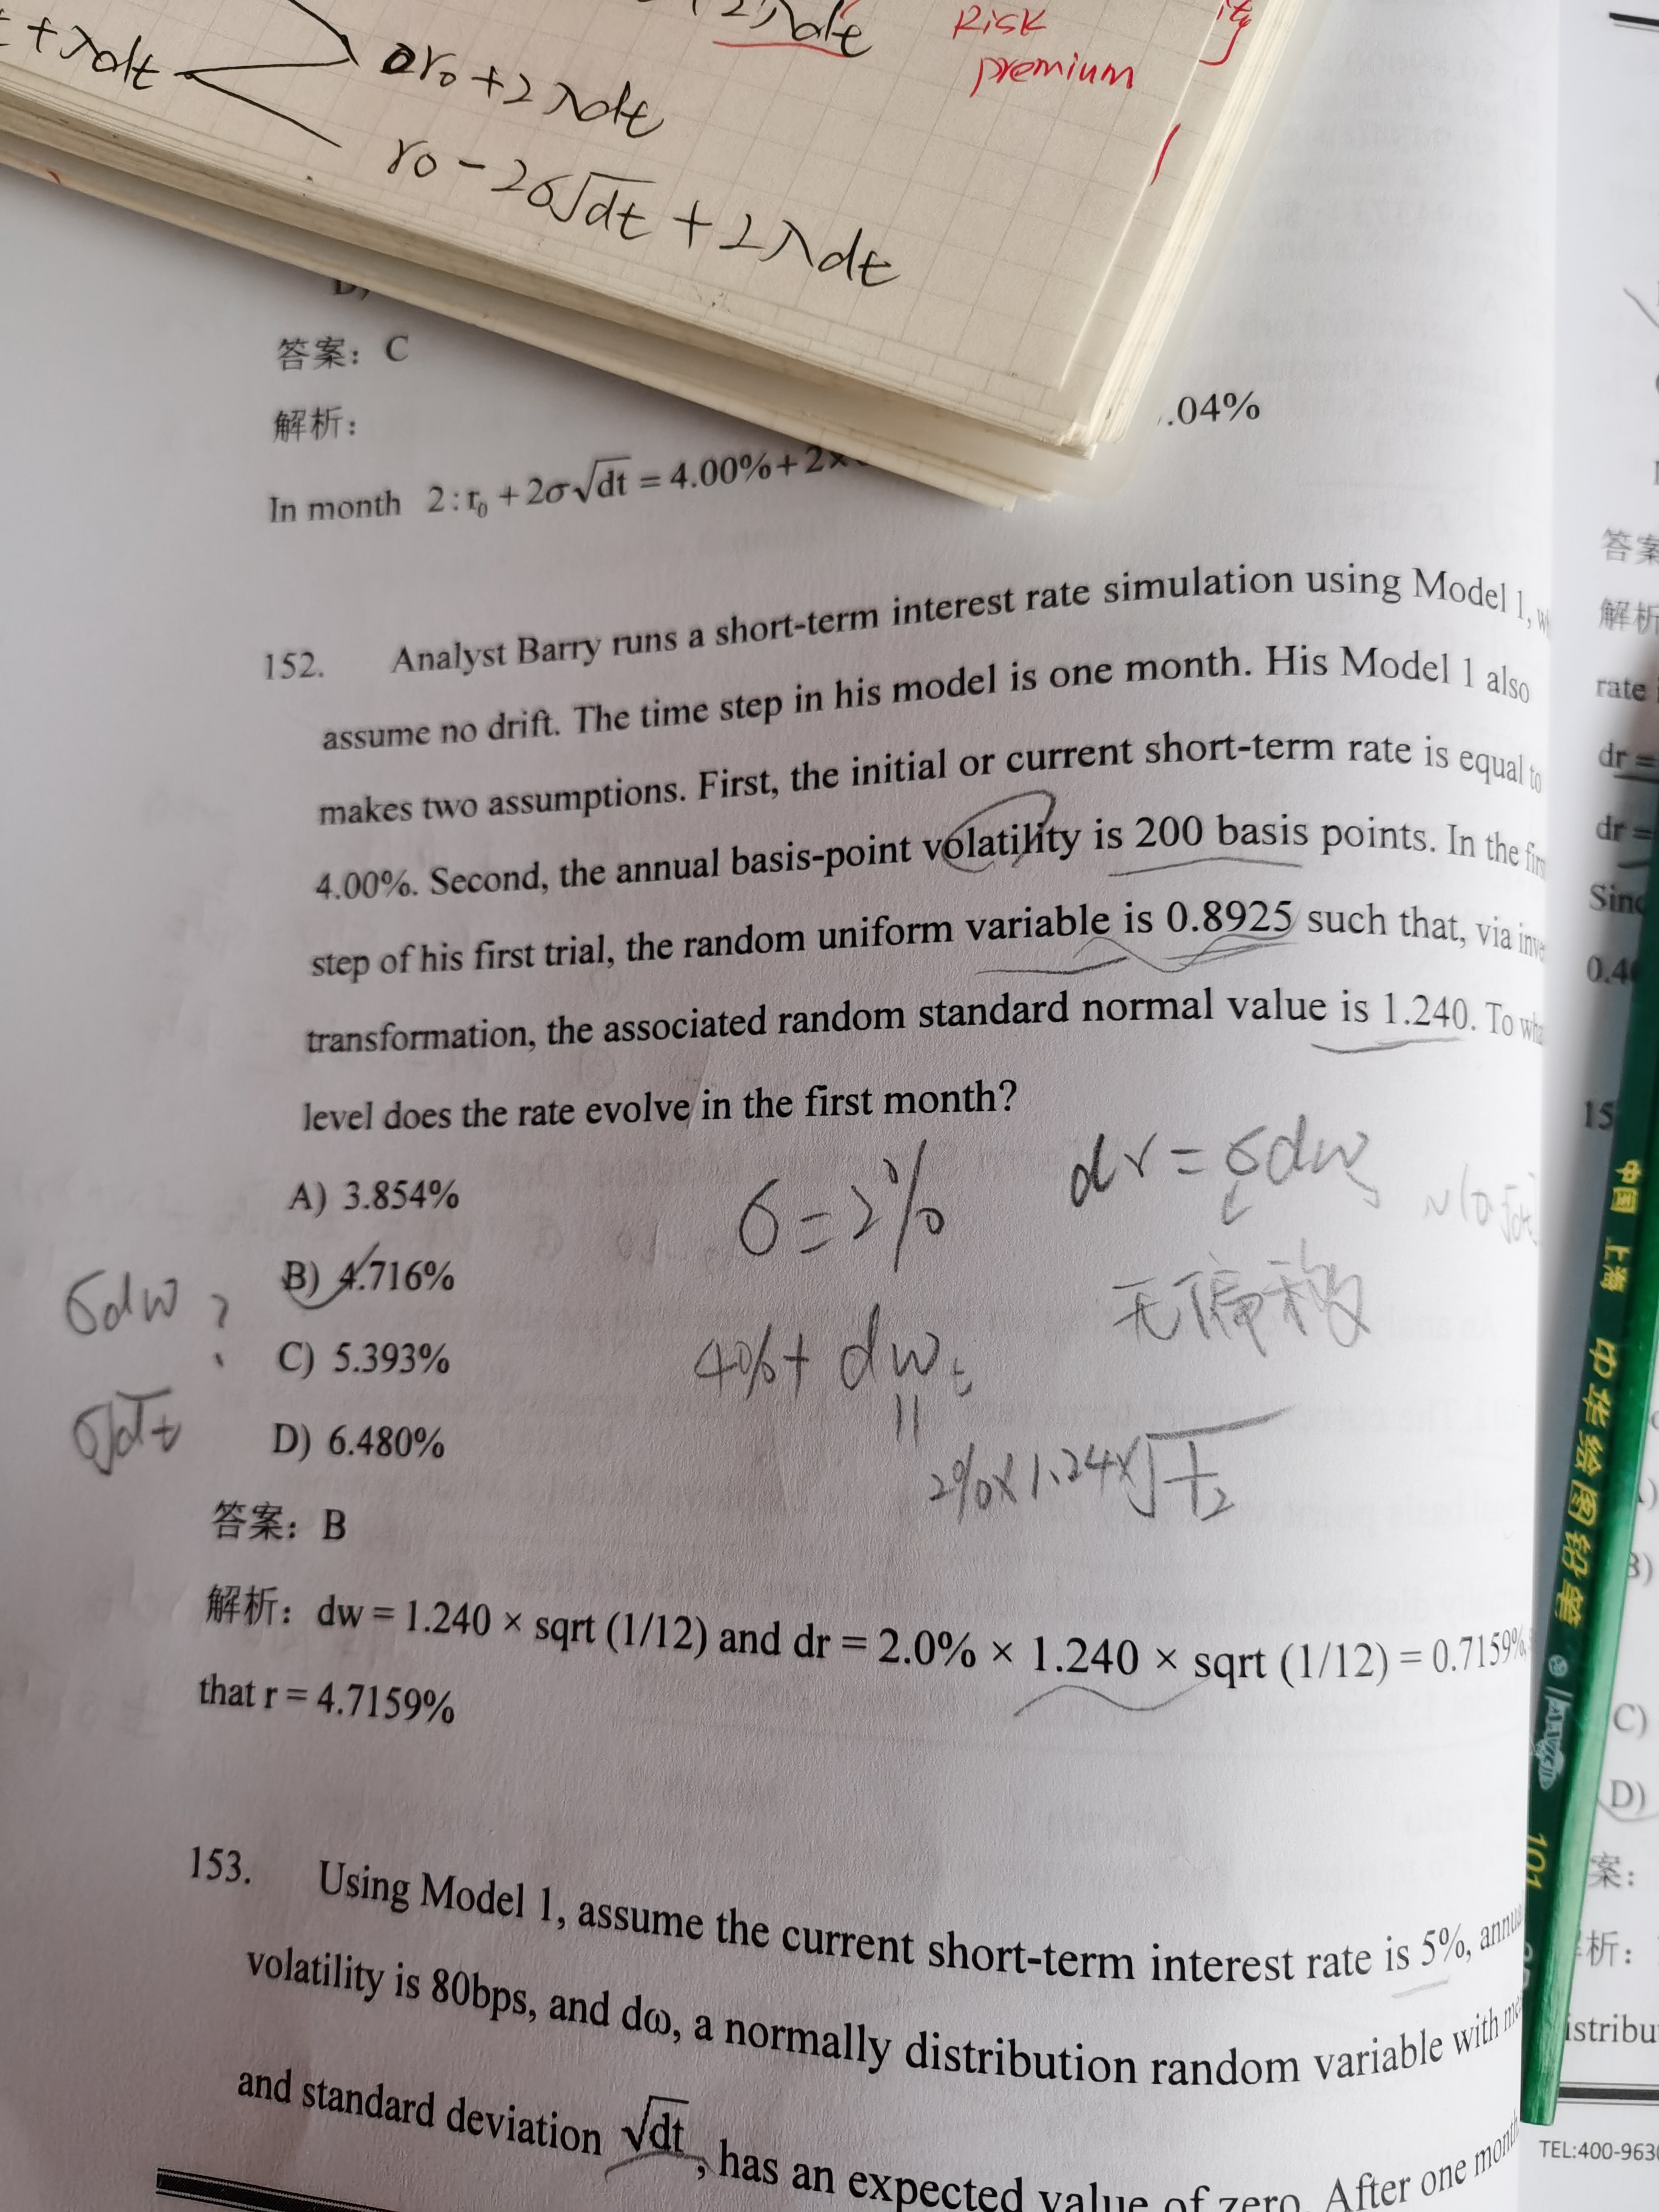 +λdt
r₀+2λdt
r₀-2σ√dt+2λdt
2λdt
Risk
premium
答案：C
解析：
.04%
In month 2:r₀+2σ√dt=4.00%+2×
152. Analyst Barry runs a short-term interest rate simulation using Model 1,
assume no drift. The time step in his model is one month. His Model 1 also
makes two assumptions. First, the initial or current short-term rate is equal to
4.00%. Second, the annual basis-point volatility is 200 basis points. In the
step of his first trial, the random uniform variable is 0.8925 such that, via
transformation, the associated random standard normal value is 1.240. To
level does the rate evolve in the first month?
A) 3.854%
B) 4.716%
C) 5.393%
D) 6.480%
σ=2%
dr=σdw
N(0,√dt)
无偏移
σdw ?
σ√dt
4%+dwₜ
2%×1.24×√1/12
答案：B
解析：dw = 1.240 × sqrt (1/12) and dr = 2.0% × 1.240 × sqrt (1/12) = 0.7159%
that r = 4.7159%
153. Using Model 1, assume the current short-term interest rate is 5%,
volatility is 80bps, and dω, a normally distribution random variable with
and standard deviation √dt, has an expected value of zero. After one month
答案
解析
rate
dr=
dr=
0.4
C)
D)
案：
析：
TEL:400-963
中国 上海 中华绘图铅笔
101